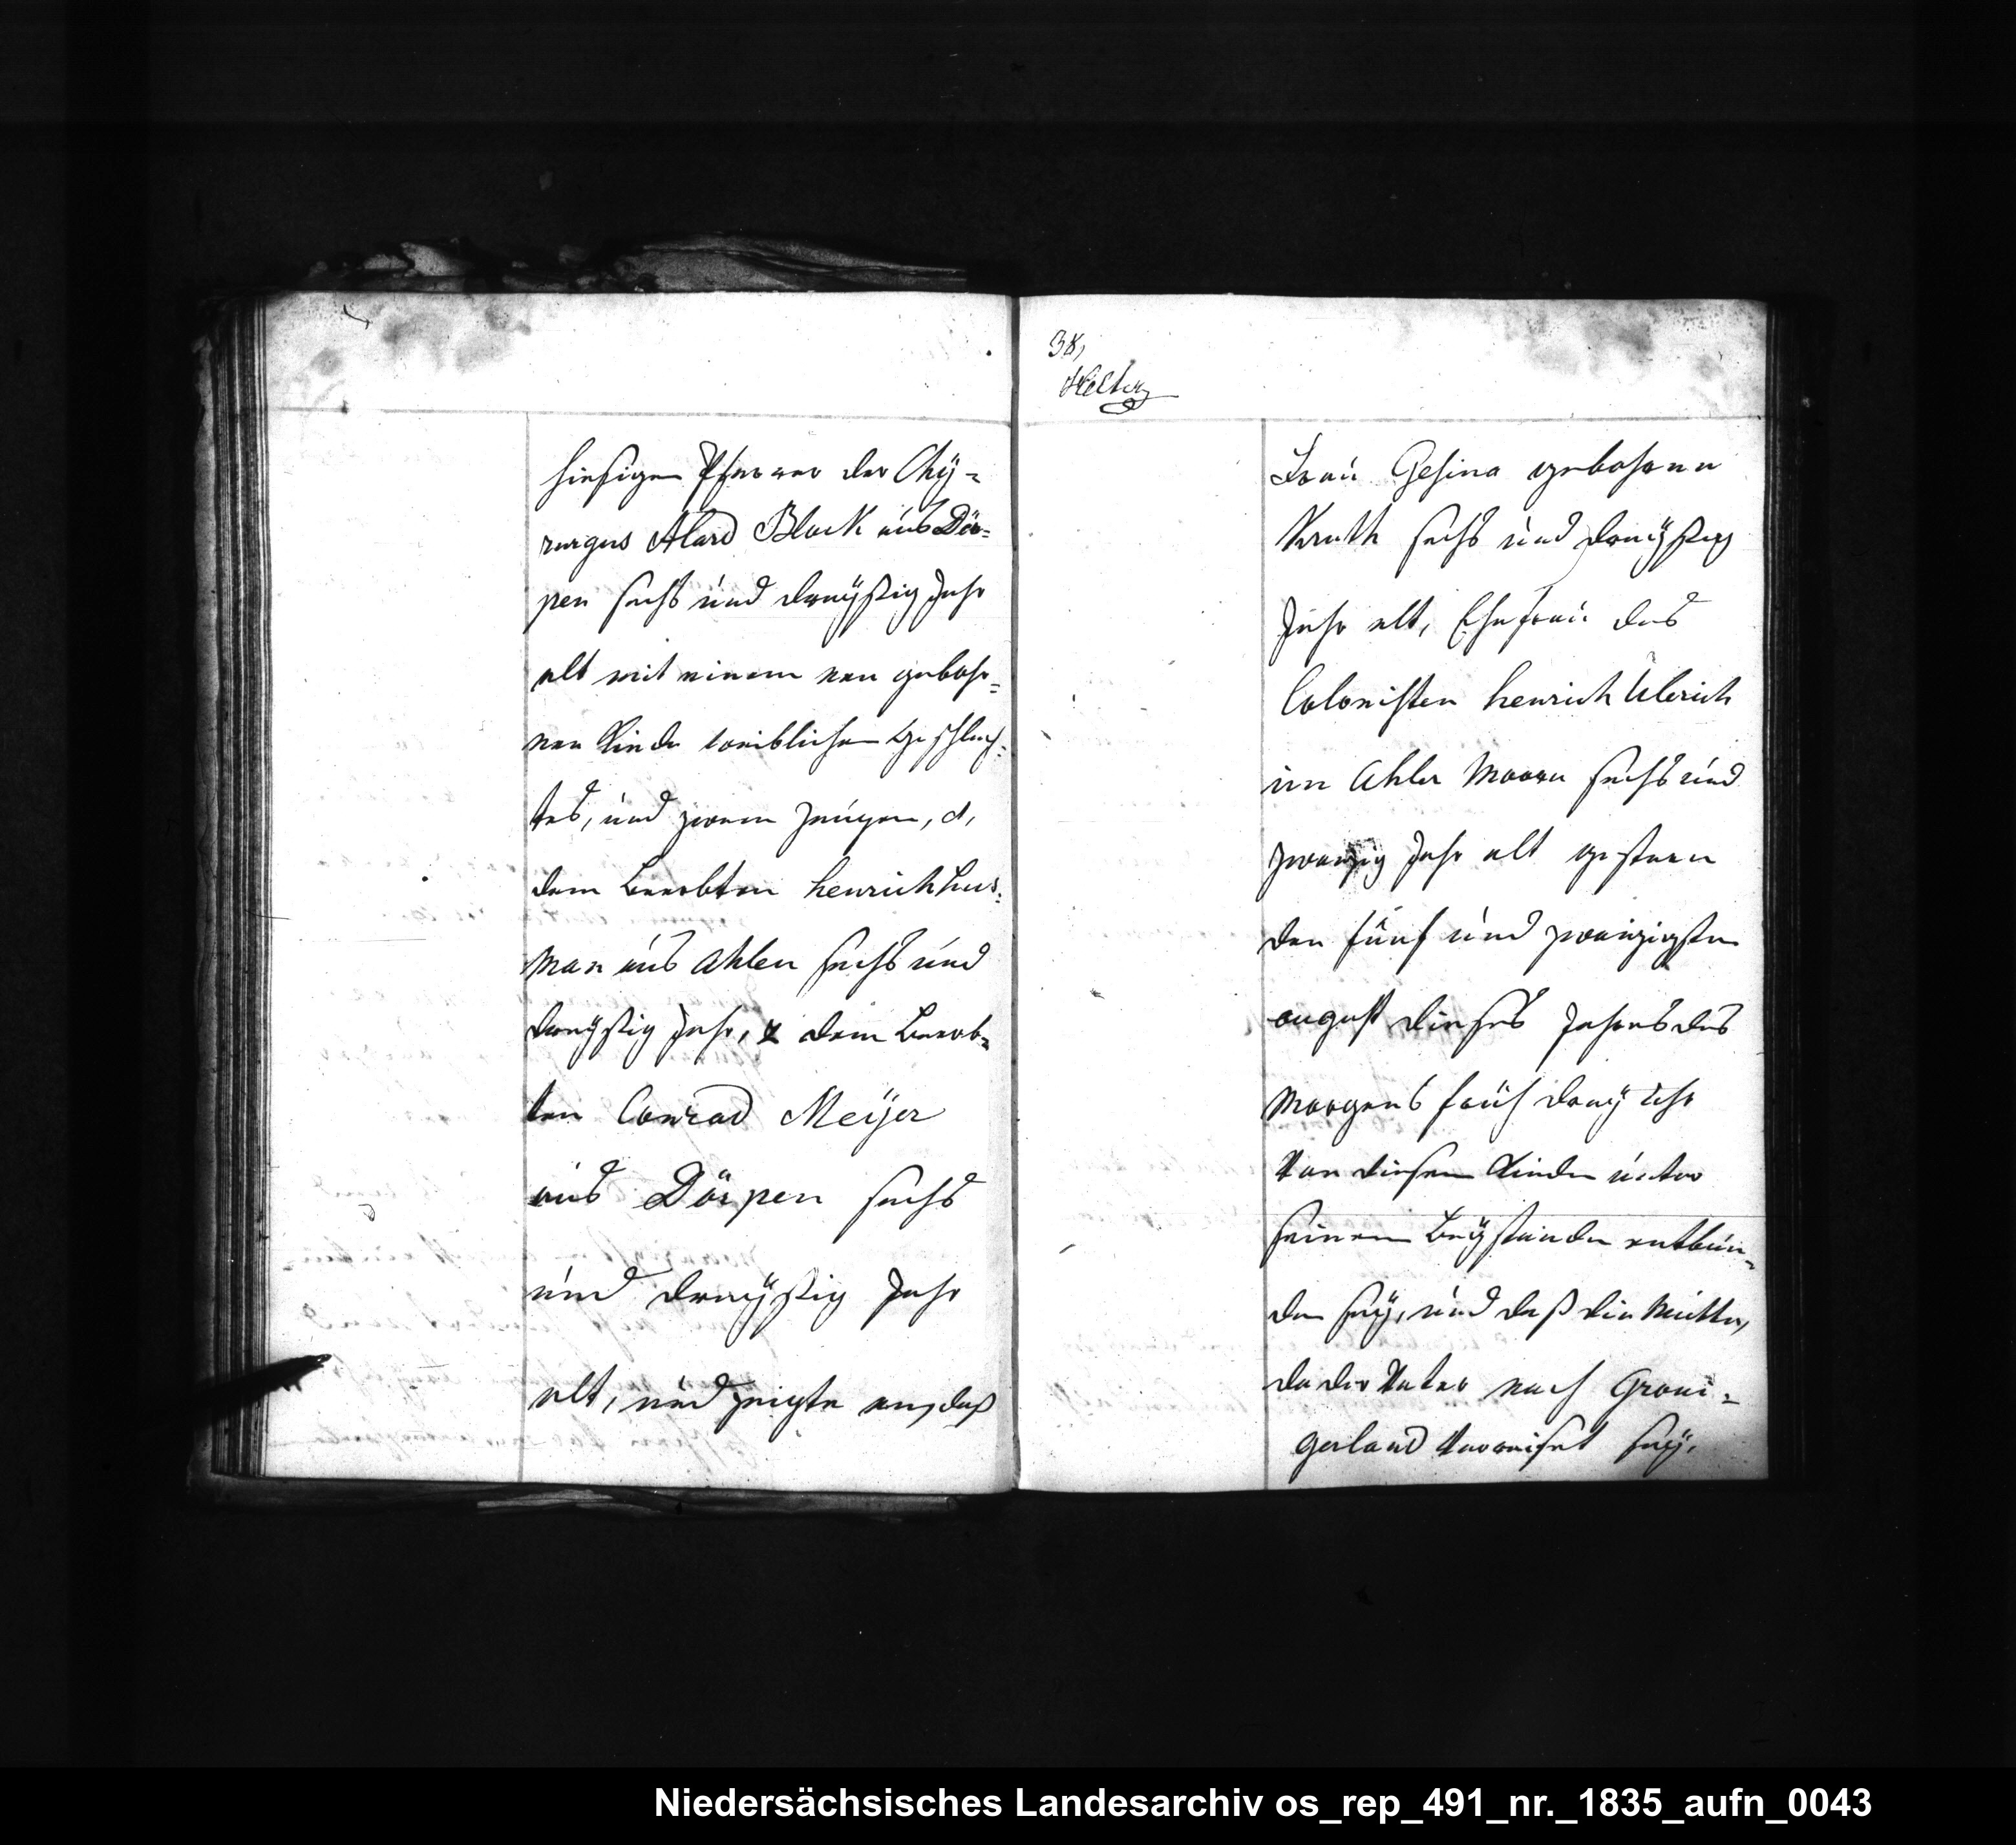 hiesigen Pfarrer der Chÿ=
rurgus Alard Block aus Dör=
pen sechs und dreÿßig Jahr
alt mit einem neu gebohr=
nen Kinde weiblichen Geschlech=
tes, und zween Zeugen, d,
dem Beerbten Henrich Hus=
man aus Ahlen sechs und
dreÿßig Jahr, & dem Beerb=
ten Conrad Meÿer
aus Dörpen sechs
und dreÿßig Jahr
alt, und zeigte an, daß
38,
Frau Gesina gebohrne
sechs und dreÿßig
Jahr alt, Ehefrau des
Colonisten Henrich Ulerich
im Ahler Moore sechs und
zwanzig Jahr alt gestern
den fünf und zwanzigsten
august dieses Jahres des
Morgens früh dreÿ Uhr
Von diesem Kinde unter
seinem Beÿstande entbun=
den seÿ, und daß die Mutter,
da der Vater nach Groni=
gerland Verreiset seÿ,
Niedersächsisches Landesarchiv os_rep_491_nr._1835_aufn_0043